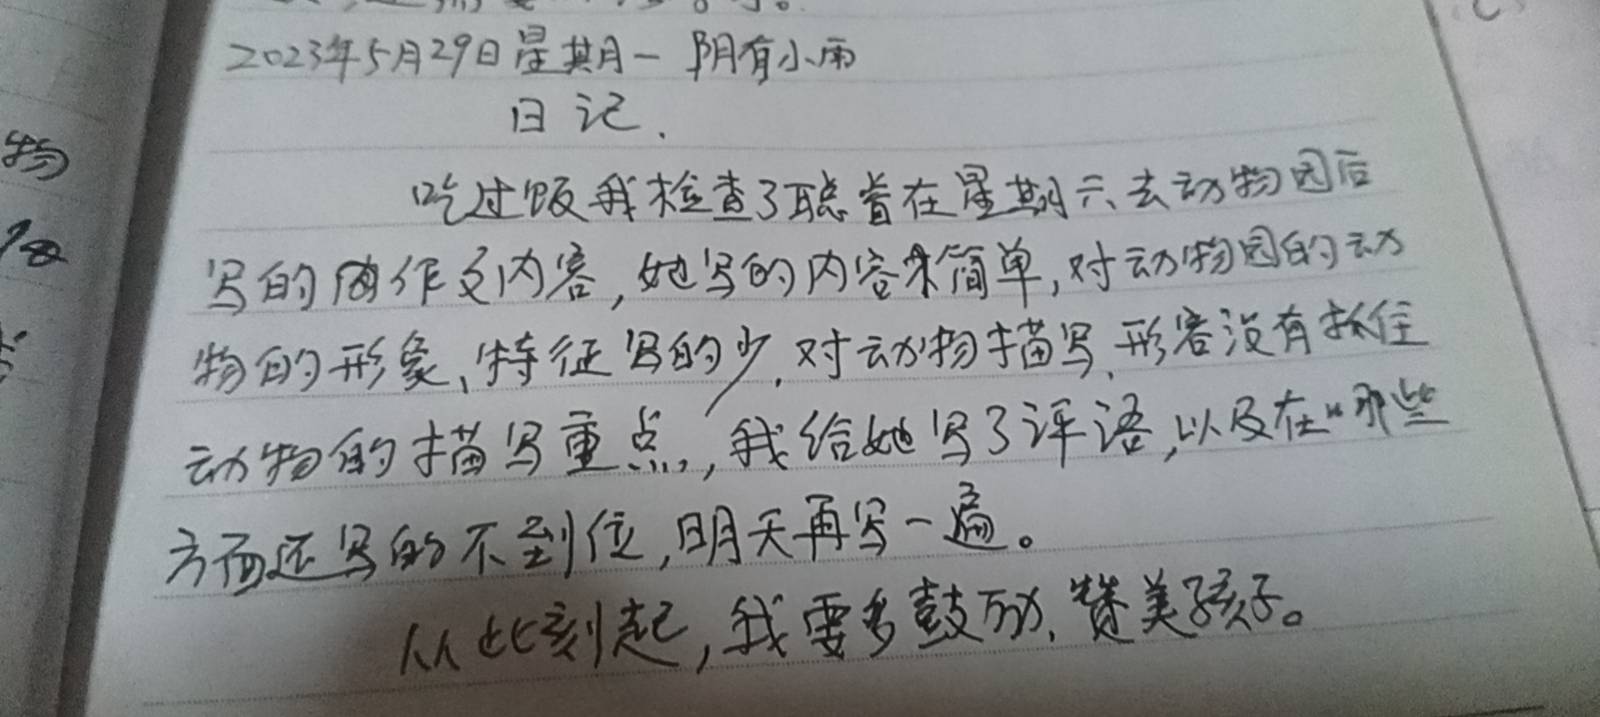 2023年5月29日星期一 阴有小雨
日记.
吃过饭我检查了聪睿在星期六去动物园后
写的作文内容,她写的内容简单,对动物园的动
物的形象、特征写的少.对动物描写、形容没有抓住
动物的描写重点,我给她写了评语,以及在“那些
方面还写的不到位,明天再写一遍。
从此刻起,我要多鼓励、赞美孩子。
物